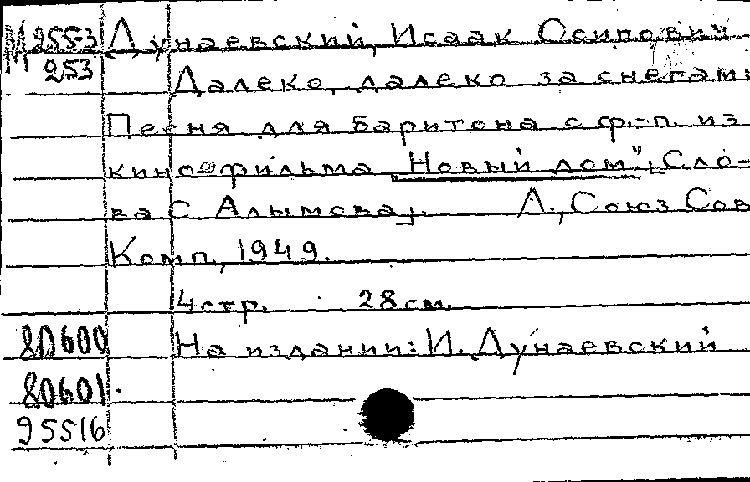 М 255-3 Дунаевский, Исаак Осипович
253 Далеко, далеко за снегами
Песня для баритона с ф.-п. из
кинофильма „Новый дом", Сло-
ва С Алымова, Л., Союз Сов
Комп., 1949.
4 стр. 28 см.
80600 На издании: И. Дунаевский
80601.
95516